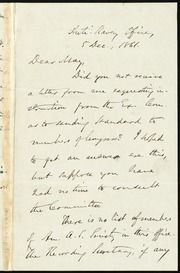 Anti-Slavery Office,
5 Dec., 1861
Dear May,
Did you not receive
a letter from me requesting in-
struction from the Ex. Com.
as to sending Standard to
members of Congress? I hoped
to get an answer ere this,
but suppose you have
had no time to consult
the Committee
There is no list of members
of Am. A. S. Society in this office.
The Recording Secretary, if any